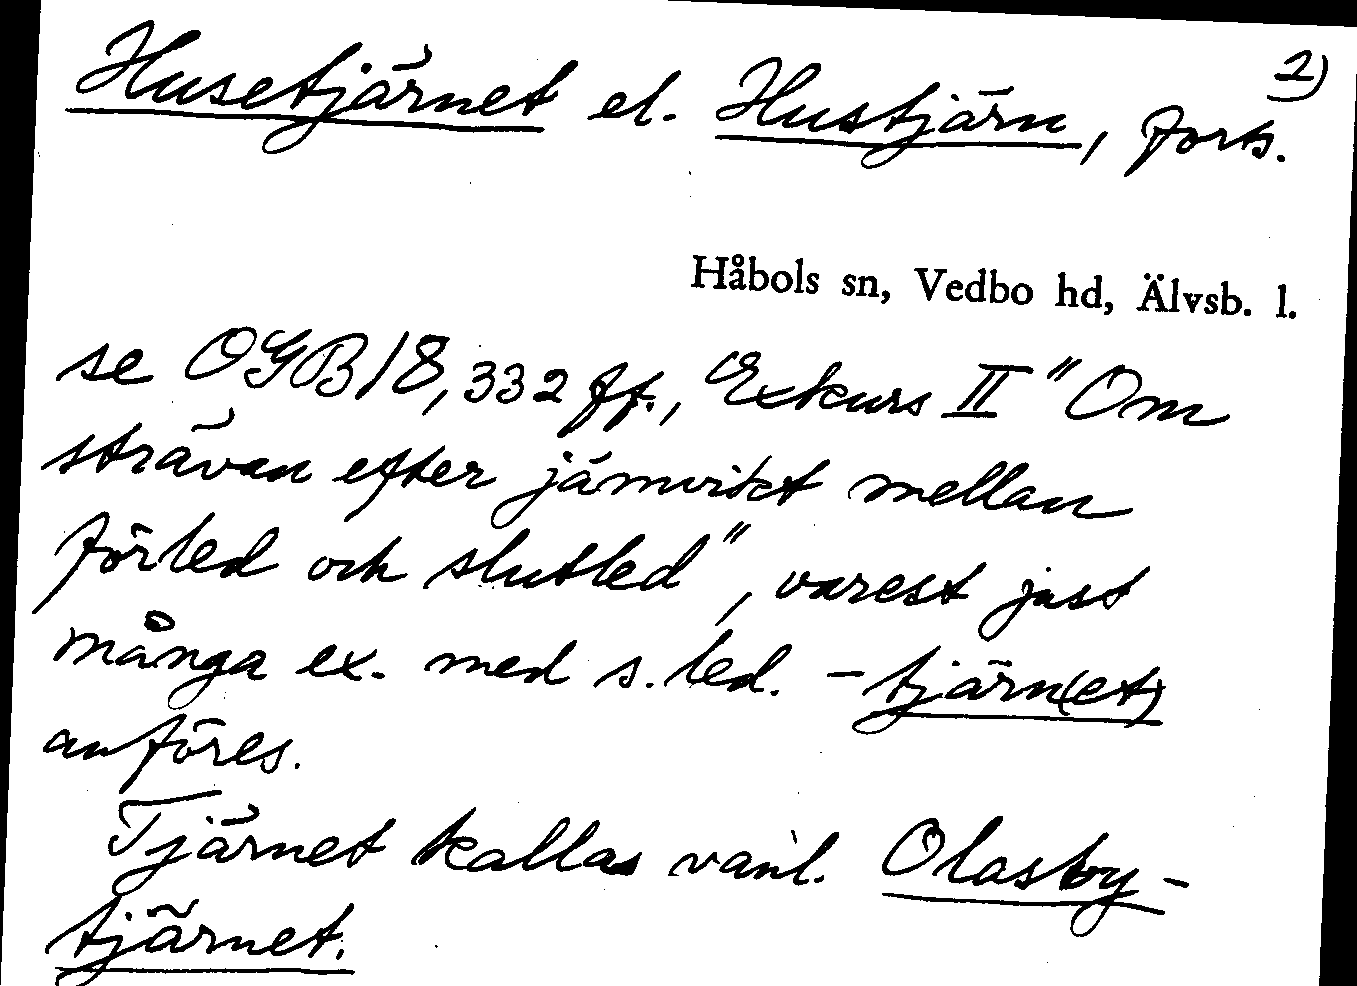 2)
Husetjärnet el. Hustjärn, forts.
Håbols sn, Vedbo hd, Älvsb. l.
se OGB 18, 332 ff., Exkurs II "Om
strävan efter jämvikt mellan
förled och slutled", varest just
många ex. med s.led. -tjärn(et)
anföres.
Tjärnet kallas vanl. Olasby-
tjärnet.